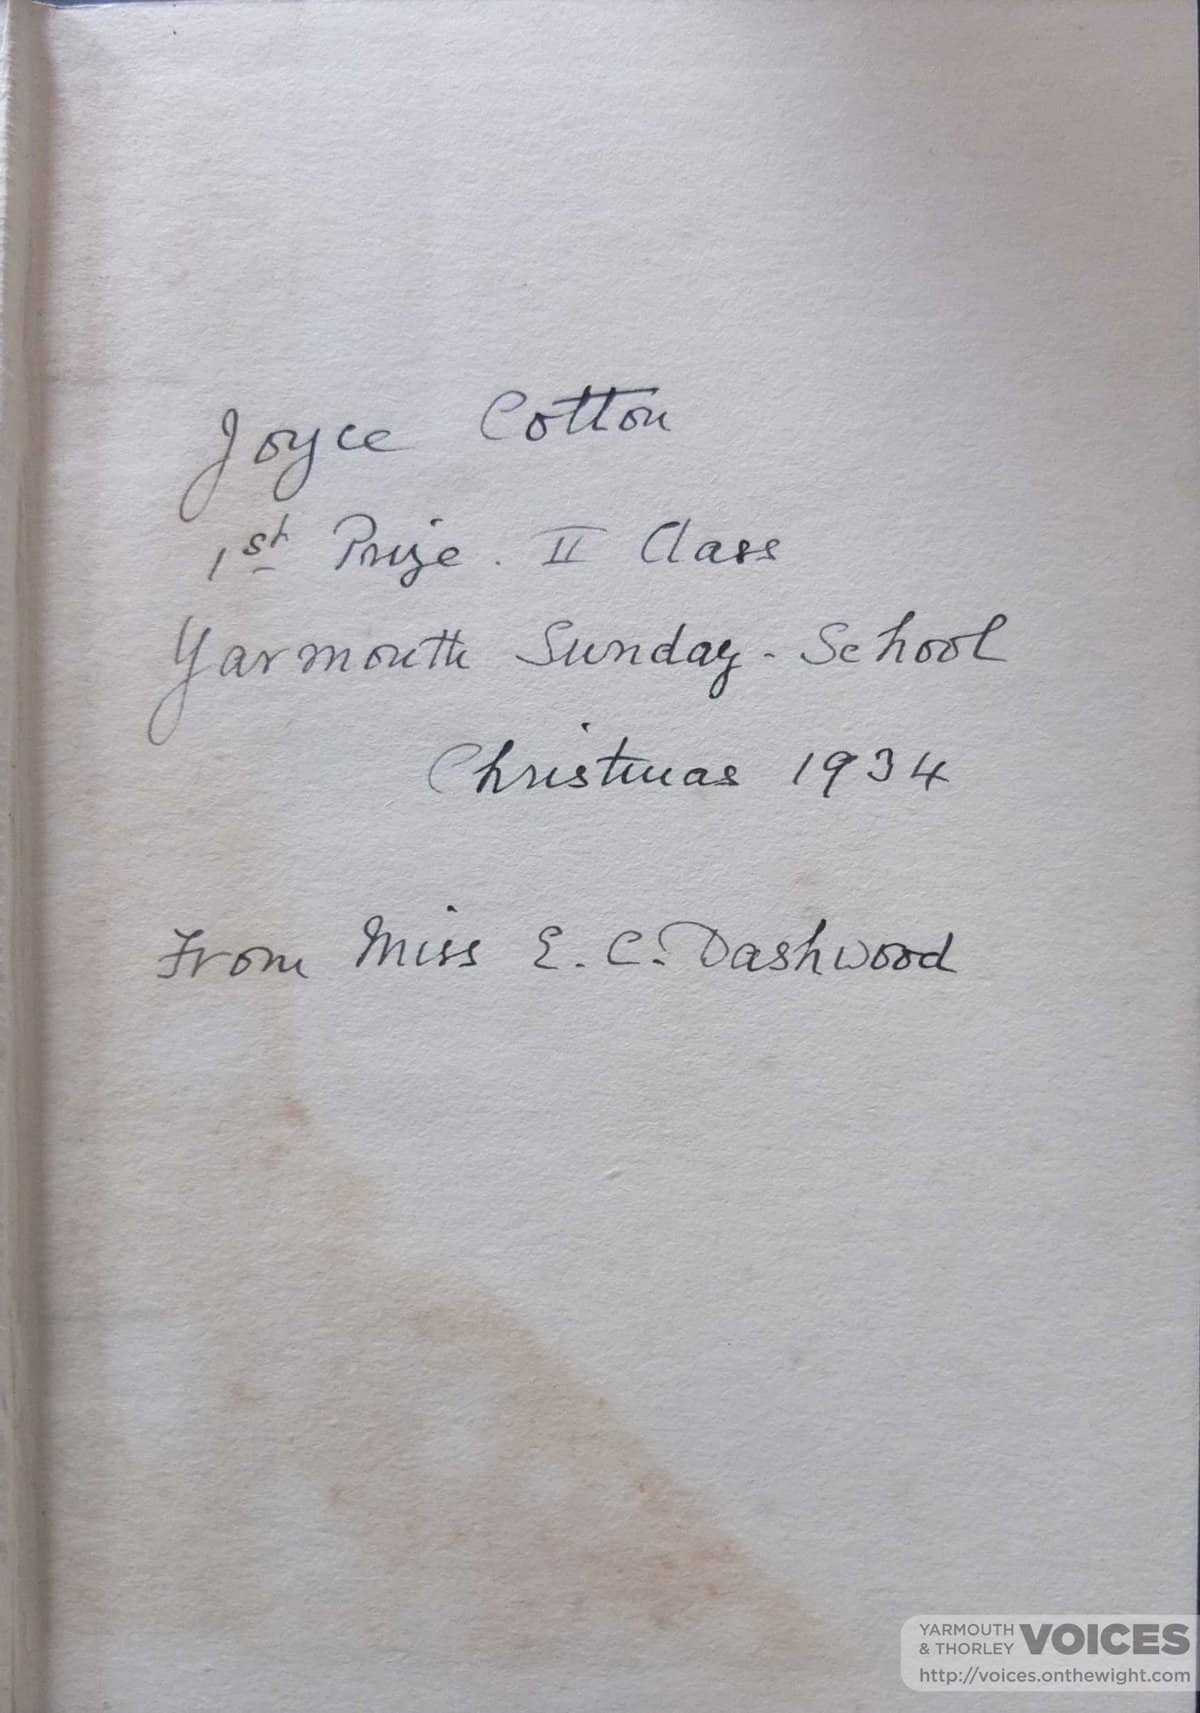 Joyce Cotton
1st Prize. II Class
Yarmouth Sunday-School
Christmas 1934
From Miss E. C. Dashwood
YARMOUTH & THORLEY VOICES
http://voices.onthewight.com